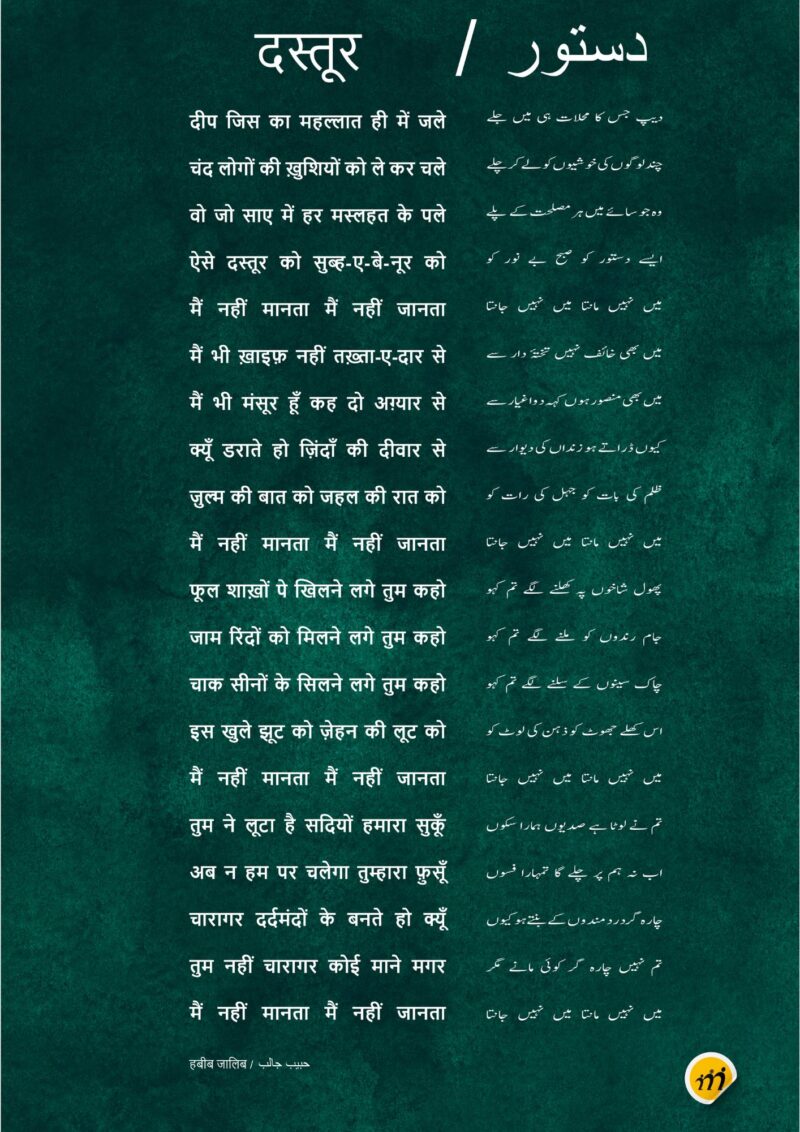 दस्तूर / دستور
दीप जिस का महल्लात ही में जले
دیپ جس کا محلات ہی میں جلے
चंद लोगों की ख़ुशियों को ले कर चले
چند لوگوں کی خوشیوں کو لے کر چلے
वो जो साए में हर मस्लहत के पले
وہ جو سائے میں ہر مصلحت کے پلے
ऐसे दस्तूर को सुब्ह-ए-बे-नूर को
ایسے دستور کو صبح بے نور کو
मैं नहीं मानता मैं नहीं जानता
میں نہیں مانتا میں نہیں جانتا
मैं भी ख़ाइफ़ नहीं तख़्ता-ए-दार से
میں بھی خائف نہیں تختۂ دار سے
मैं भी मंसूर हूँ कह दो अग़्यार से
میں بھی منصور ہوں کہہ دو اغیار سے
क्यूँ डराते हो ज़िंदाँ की दीवार से
کیوں ڈراتے ہو زنداں کی دیوار سے
ज़ुल्म की बात को जहल की रात को
ظلم کی بات کو جہل کی رات کو
मैं नहीं मानता मैं नहीं जानता
میں نہیں مانتا میں نہیں جانتا
फूल शाख़ों पे खिलने लगे तुम कहो
پھول شاخوں پہ کھلنے لگے تم کہو
जाम रिंदों को मिलने लगे तुम कहो
جام رندوں کو ملنے لگے تم کہو
चाक सीनों के सिलने लगे तुम कहो
چاک سینوں کے سلنے لگے تم کہو
इस खुले झूट को ज़ेहन की लूट को
اس کھلے جھوٹ کو ذہن کی لوٹ کو
मैं नहीं मानता मैं नहीं जानता
میں نہیں مانتا میں نہیں جانتا
तुम ने लूटा है सदियों हमारा सुकूँ
تم نے لوٹا ہے صدیوں ہمارا سکوں
अब न हम पर चलेगा तुम्हारा फ़ुसूँ
اب نہ ہم پر چلے گا تمہارا فسوں
चारागर दर्दमंदों के बनते हो क्यूँ
چارہ گر دردمندوں کے بنتے ہو کیوں
तुम नहीं चारागर कोई माने मगर
تم نہیں چارہ گر کوئی مانے مگر
मैं नहीं मानता मैं नहीं जानता
میں نہیں مانتا میں نہیں جانتا
हबीब जालिब / حبیب جالب